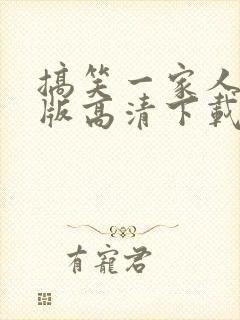 搞笑一家人
版高清下载
有寵君